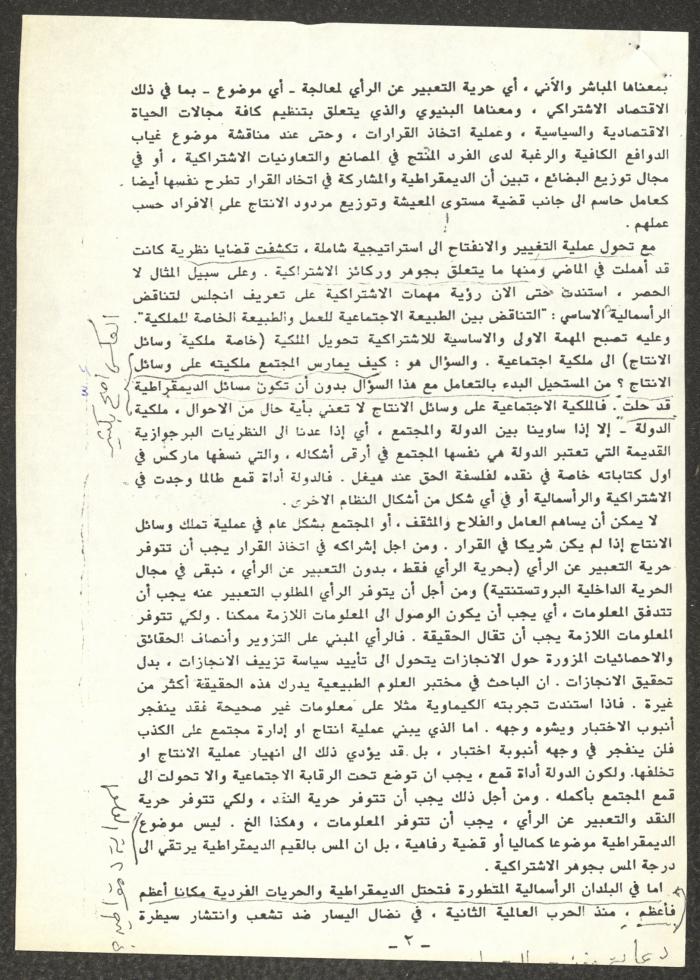 بمعناها المباشر والآني ، أي حرية التعبير عن الرأي لمعالجة ـ أي موضوع ـ بما في ذلك
الاقتصاد الاشتراكي ، ومعناها البنيوي والذي يتعلق بتنظيم كافة مجالات الحياة
الاقتصادية والسياسية ، وعملية اتخاذ القرارات ، وحتى عند مناقشة موضوع غياب
الدوافع الكافية والرغبة لدى الفرد المنتج في المصانع والتعاونيات الاشتراكية ، أو في
مجال توزيع البضائع ، تبين أن الديمقراطية والمشاركة في اتخاد القرار تطرح نفسها أيضا
كعامل حاسم الى جانب قضية مستوى المعيشة وتوزيع مردود الانتاج على الافراد حسب
عملهم .
مع تحول عملية التغيير والانفتاح الى استراتيجية شاملة ، تكشفت قضايا نظرية كانت
قد أهملت في الماضي ومنها ما يتعلق بجوهر وركائز الاشتراكية . وعلى سبيل المثال لا
الحصر ، استندت حتى الآن رؤية مهمات الاشتراكية على تعريف انجلس لتناقض
الرأسمالية الاساسي : "التناقض بين الطبيعة الاجتماعية للعمل والطبيعة الخاصة للملكية".
وعليه تصبح المهمة الاولى والاساسية للاشتراكية تحويل الملكية (خاصة ملكية وسائل
الانتاج) الى ملكية اجتماعية . والسؤال هو : كيف يمارس المجتمع ملكيته على وسائل
الانتاج ؟ من المستحيل البدء بالتعامل مع هذا السؤال بدون أن تكون مسائل الديمقراطية
قد حلت . فالملكية الاجتماعية على وسائل الانتاج لا تعني بأية حال من الاحوال ، ملكية
الدولة ـ إلا إذا ساوينا بين الدولة والمجتمع ، أي إذا عدنا الى النظريات البرجوازية
القديمة التي تعتبر الدولة هي نفسها المجتمع في أرقى أشكاله ، والتي نسفها ماركس في
اول كتاباته خاصة في نقده لفلسفة الحق عند هيغل . فالدولة أداة قمع طالما وجدت في
الاشتراكية والرأسمالية أو في أي شكل من أشكال النظام الاخرى .
لا يمكن أن يساهم العامل والفلاح والمثقف ، أو المجتمع بشكل عام في عملية تملك وسائل
الانتاج إذا لم يكن شريكا في القرار . ومن اجل إشراكه في اتخاذ القرار يجب أن تتوفر
حرية التعبير عن الرأي (بحرية الرأي فقط ، بدون التعبير عن الرأي ، نبقى في مجال
الحرية الداخلية البروتستنتية) ومن أجل أن يتوفر الرأي المطلوب التعبير عنه يجب أن
تتدفق المعلومات ، أي يجب أن يكون الوصول الى المعلومات اللازمة ممكنا . ولكي تتوفر
المعلومات اللازمة يجب أن تقال الحقيقة . فالرأي المبني على التزوير وأنصاف الحقائق
والاحصائيات المزورة حول الانجازات يتحول الى تأييد سياسة تزييف الانجازات ، بدل
تحقيق الانجازات . ان الباحث في مختبر العلوم الطبيعية يدرك هذه الحقيقة أكثر من
غيرة . فاذا استندت تجربته الكيماوية مثلا على معلومات غير صحيحة فقد ينفجر
أنبوب الاختبار ويشوه وجهه . اما الذي يبني عملية انتاج او إدارة مجتمع على الكذب
فلن ينفجر في وجهه أنبوبة اختبار ، بل قد يؤدي ذلك الى انهيار عملية الانتاج او
تخلفها. ولكون الدولة أداة قمع ، يجب ان توضع تحت الرقابة الاجتماعية والا تحولت الى
قمع المجتمع بأكمله . ومن أجل ذلك يجب أن تتوفر حرية النقد ، ولكي تتوفر حرية
النقد والتعبير عن الرأي ، يجب أن تتوفر المعلومات ، وهكذا الخ . ليس موضوع
الديمقراطية موضوعا كماليا أو قضية رفاهية ، بل ان المس بالقيم الديمقراطية يرتقي الى
درجة المس بجوهر الاشتراكية .
اما في البلدان الرأسمالية المتطورة فتحتل الديمقراطية والحريات الفردية مكانا أعظم
فأعظم ، منذ الحرب العالمية الثانية ، في نضال اليسار ضد تشعب وانتشار سيطرة
ـ ٢ ـ